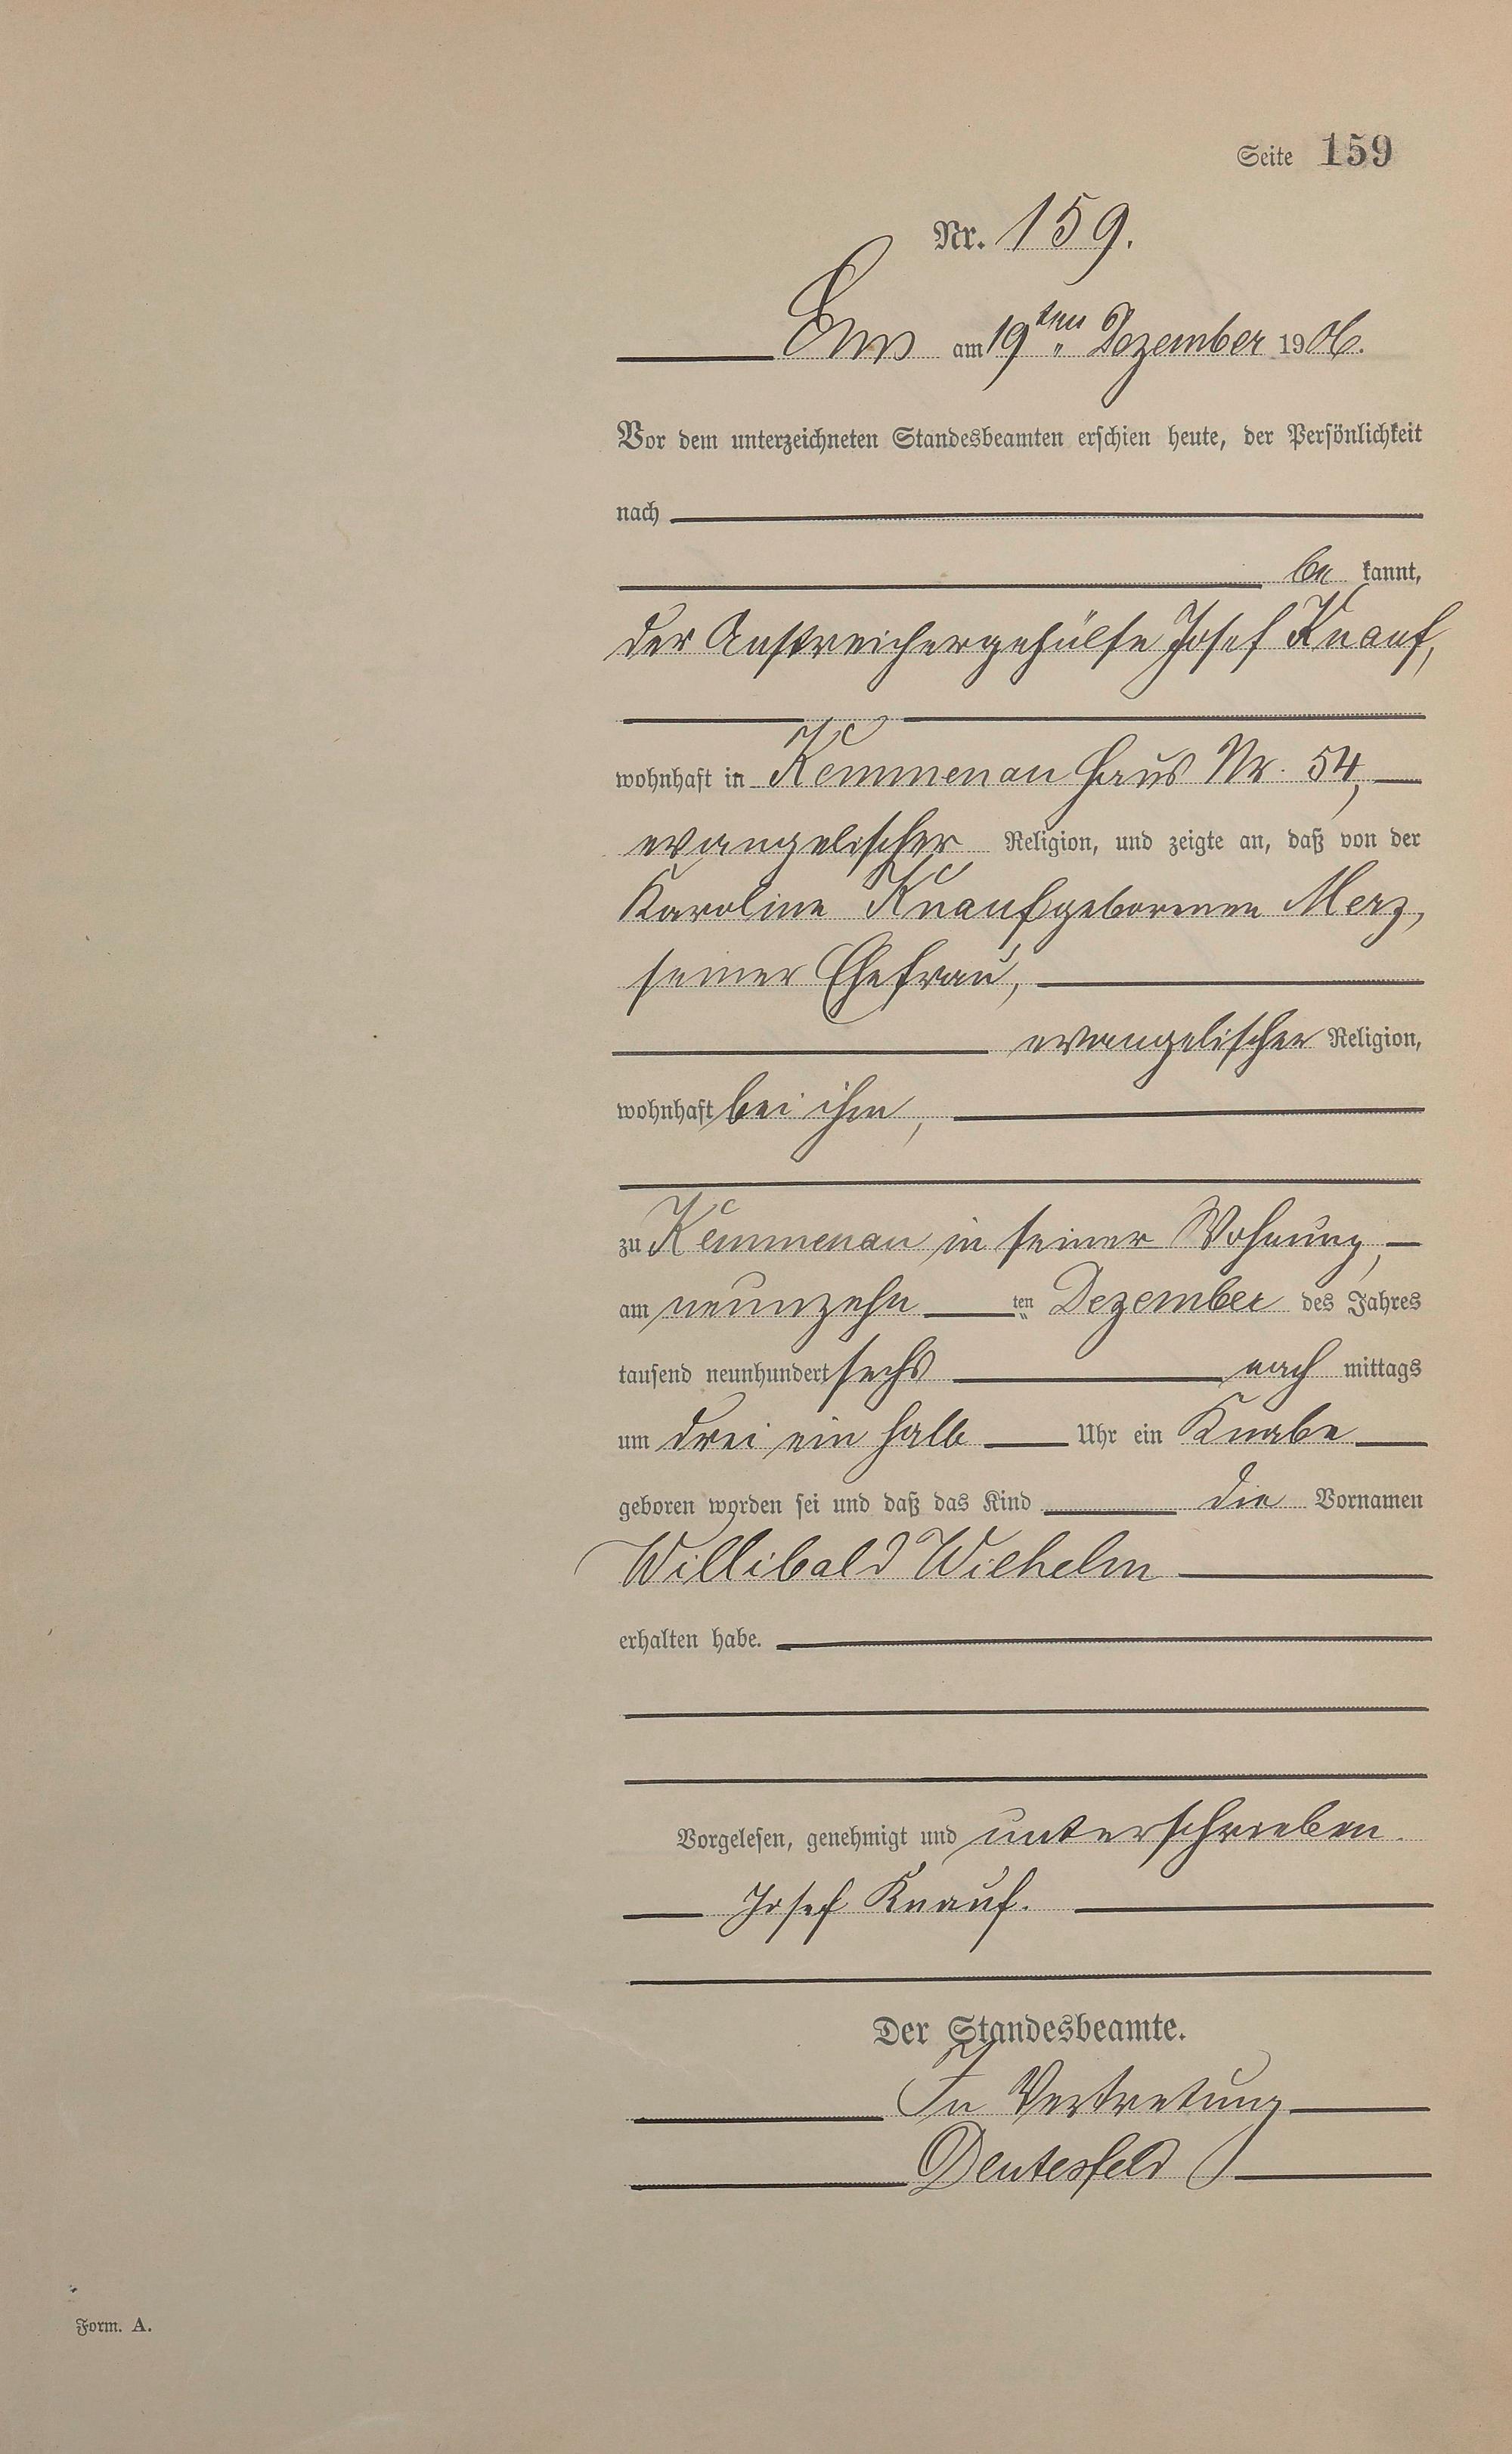 Seite 159
Nr. 159.
Ems am 19ten Dezember 1906.
Vor dem unterzeichneten Standesbeamten erschien heute, der Persönlichkeit
nach
be kannt,
der Anstreichergehülfe Josef Knauf,
wohnhaft in Kemmenau Haus Nr. 54,
evangelischer Religion, und zeigte an, daß von der
Karoline Knauf geborenen Merz,
seiner Ehefrau,
evangelischer Religion,
wohnhaft bei ihm,
zu Kemmenau in seiner Wohnung,
am neunzehn ten Dezember des Jahres
tausend neunhundert sechs nach mittags
um drei ein halb Uhr ein Knabe
geboren worden sei und daß das Kind die Vornamen
Willibald Wilhelm
erhalten habe.
Vorgelesen, genehmigt und unterschrieben.
Josef Knauf.
Der Standesbeamte.
In Vertretung
Deutesfeld
Form. A.